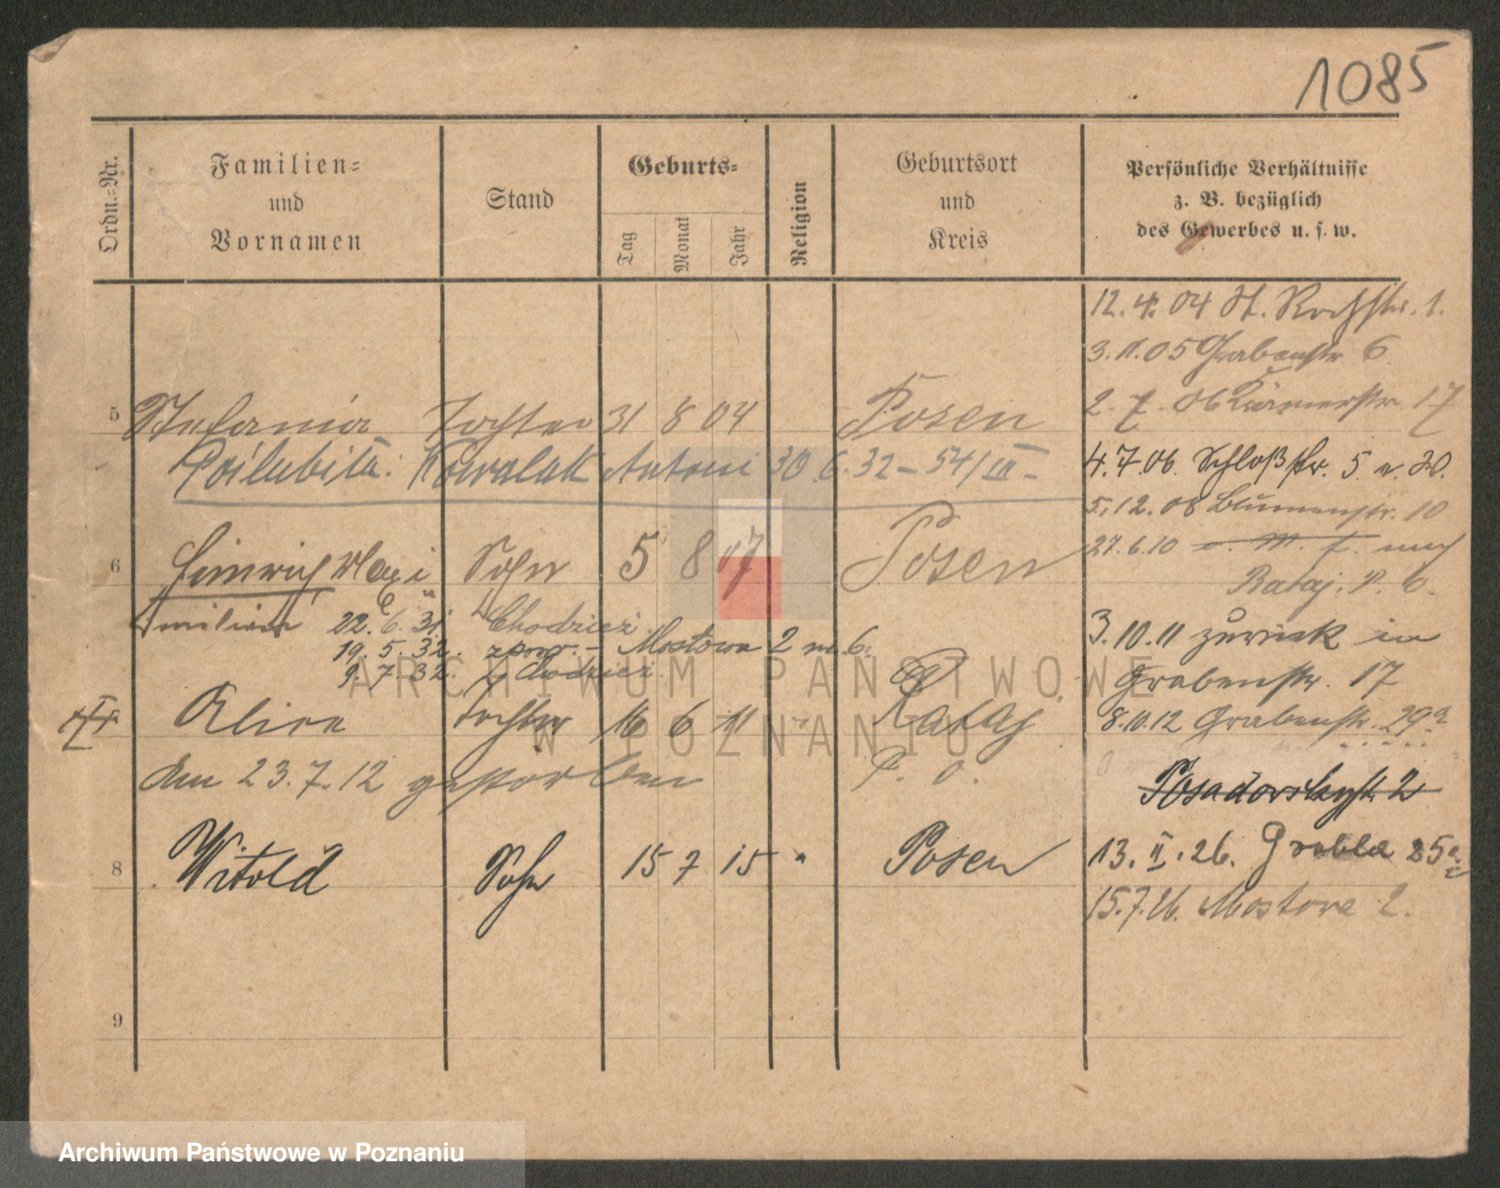 1085
Ordn.-Nr.
Familien-
und
Vornamen
Stand
Geburts-
Tag
Monat
Jahr
Religion
Geburtsort
und
Kreis
Persönliche Verhältnisse
z. B. bezüglich
des Gewerbes u. s. w.
12.4.04 St. Rochstr. 1.
3.11.05 Grabenstr. 6
5 Stefania Tochter 31 8 04 Posen
2.7.06 17
Poślubiła: Kowalak Antoni 30.6.32 – 54/III –
4.7.06. Schloßstr. 5 a. W.
5.12.08 Blumenstr. 10
6 Heinrich Maxi Sohn 5 8 07 Posen
27.6.10 nach
Rataj. P. O.
milian 22.6.31. Chodzież
19.5.32. – Mostowa 2 m. 6.
9.7.32. Chodzież
3.10.11 zurück in
Grabenstr. 17
Alice Tochter 16 6 11 " Rataj
P. O.
8.10.12 Grabenstr. 29a
Am 23.7.12 gestorben
2
8 Witold Sohn 15 7 15 " Posen
13.II.26. Grobla 25a
15.7.26. Mostowa 2.
9
ARCHIWUM PAŃSTWOWE
W POZNANIU
Archiwum Państwowe w Poznaniu